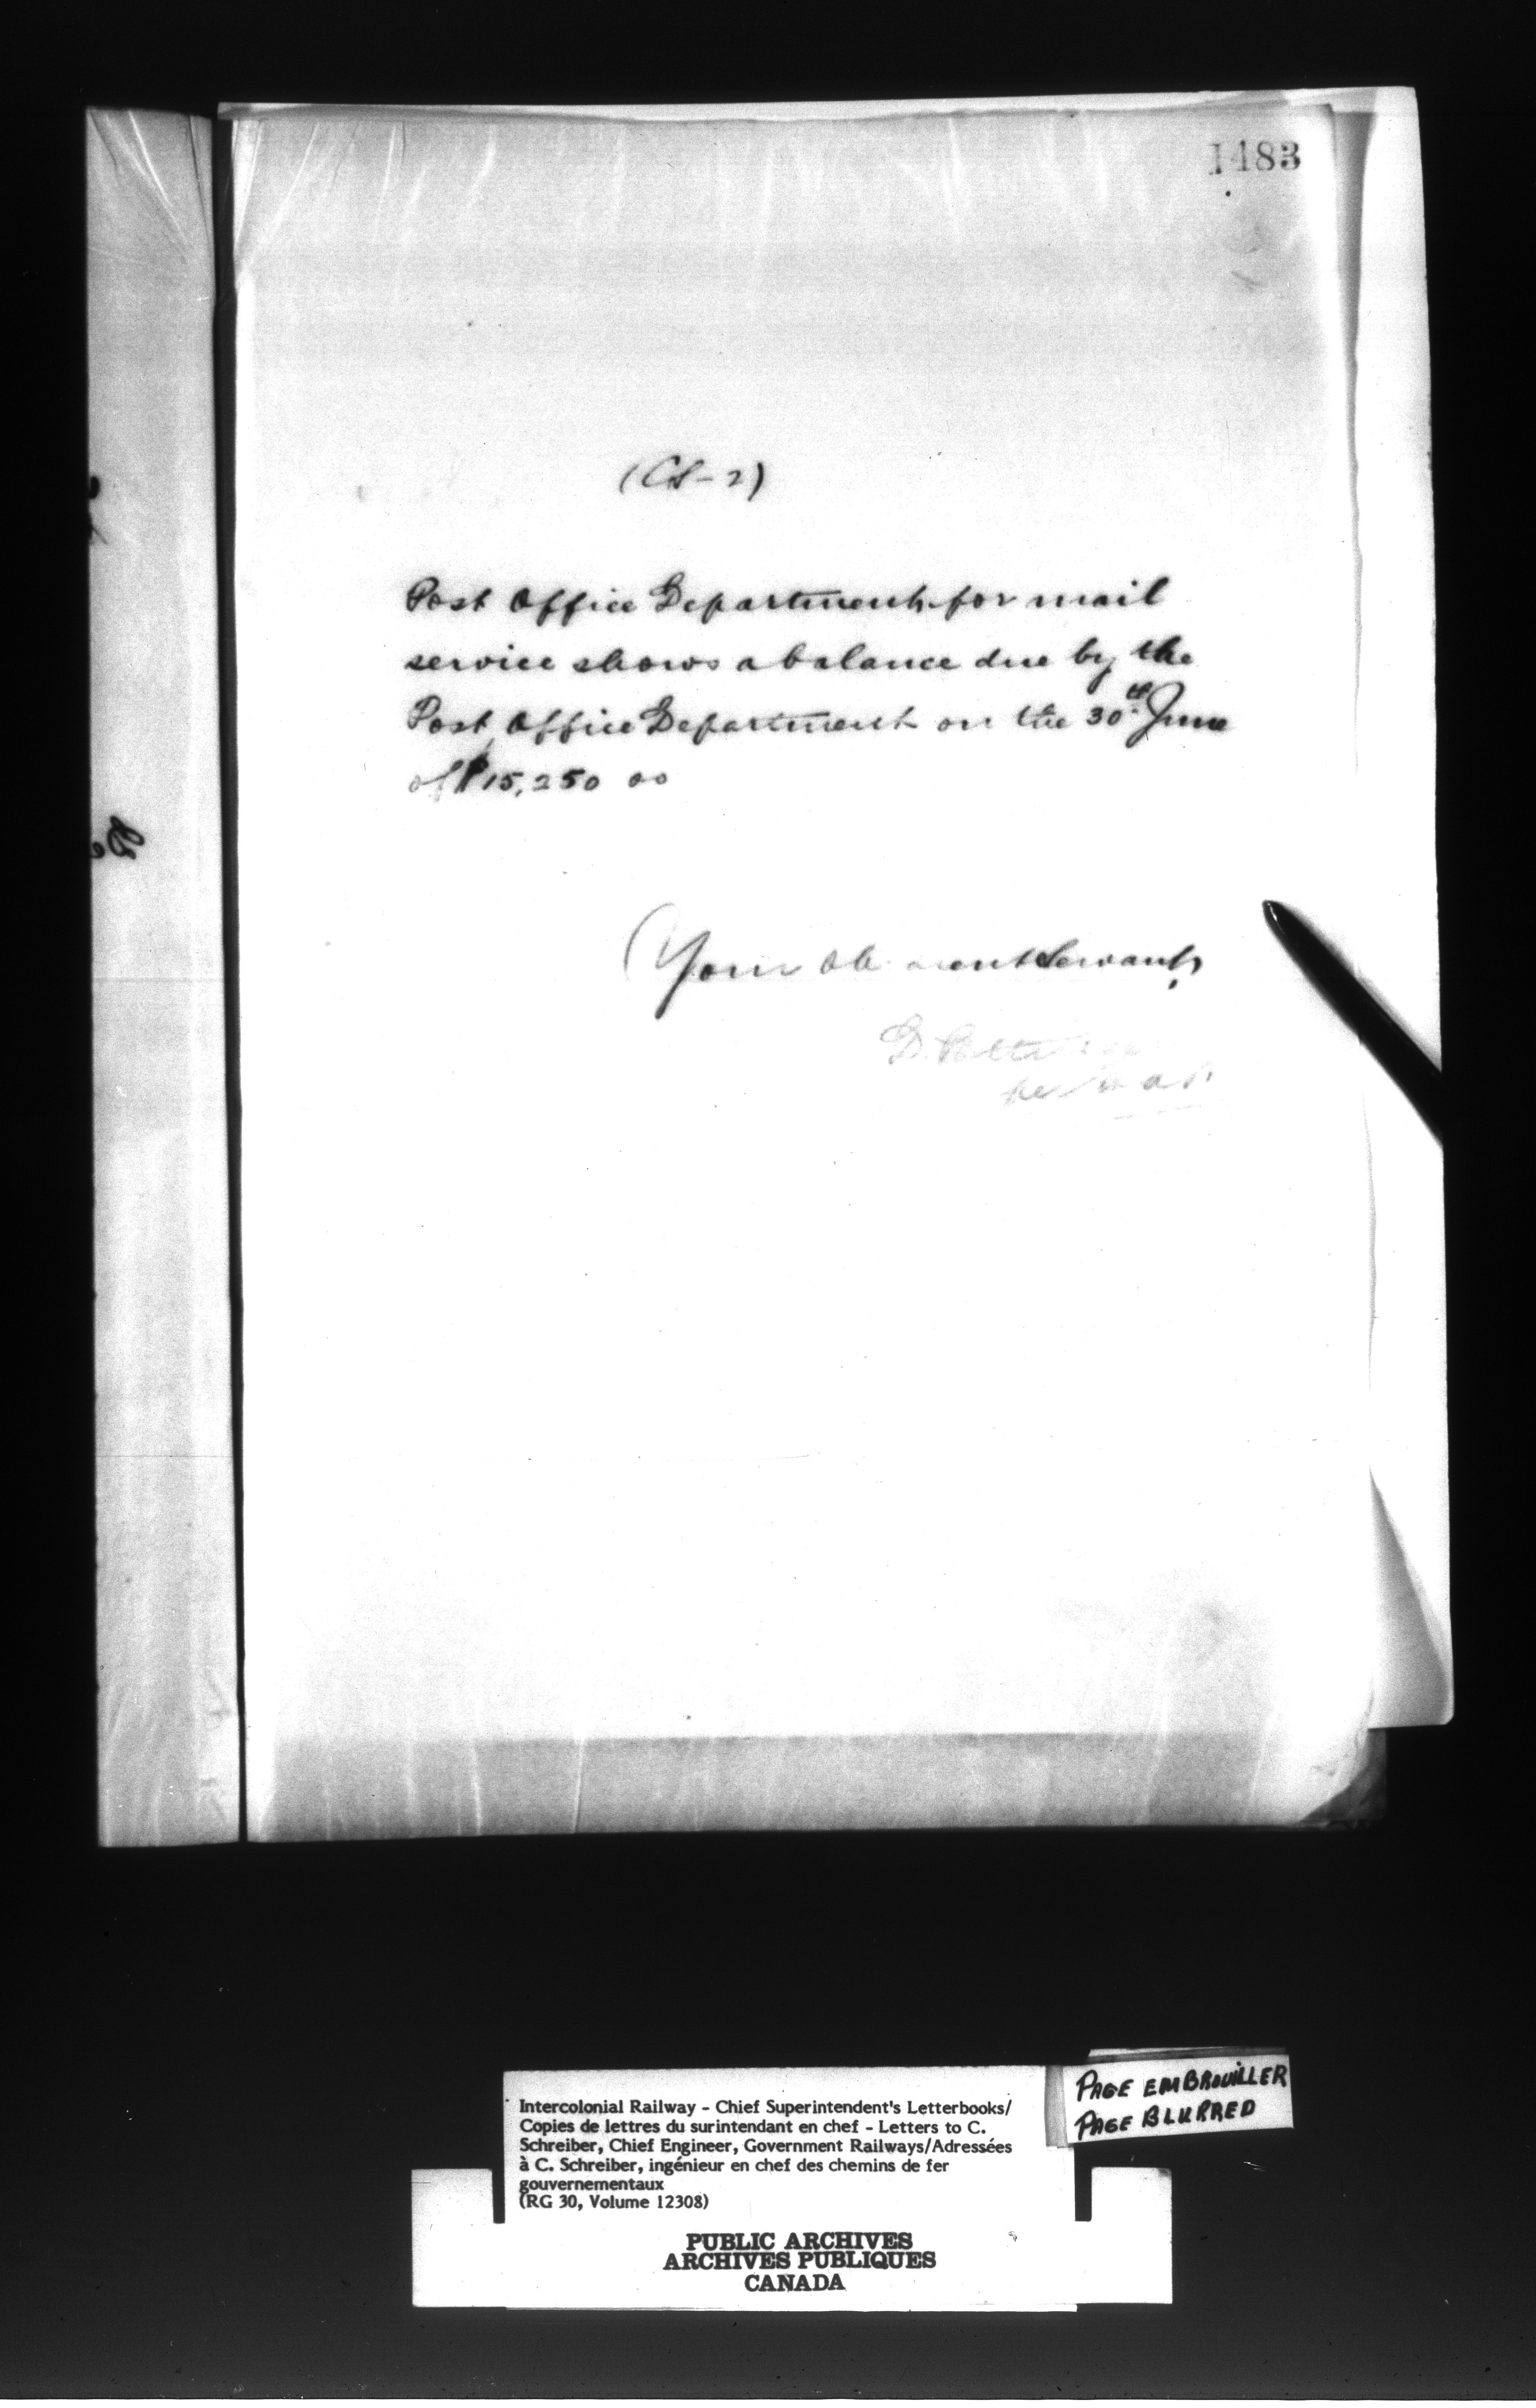 1483
(CS-2)
Post Office Department for mail
service shows a balance due by the
Post Office Department on the 30th June
of $15,250 00
Your Servant,
D.
Intercolonial Railway - Chief Superintendent's Letterbooks/
Copies de lettres du surintendant en chef - Letters to C.
Schreiber, Chief Engineer, Government Railways/Adressées
à C. Schreiber, ingénieur en chef des chemins de fer
gouvernementaux
(RG 30, Volume 12308)
PAGE EMBROUILLER
PAGE BLURRED
PUBLIC ARCHIVES
ARCHIVES PUBLIQUES
CANADA